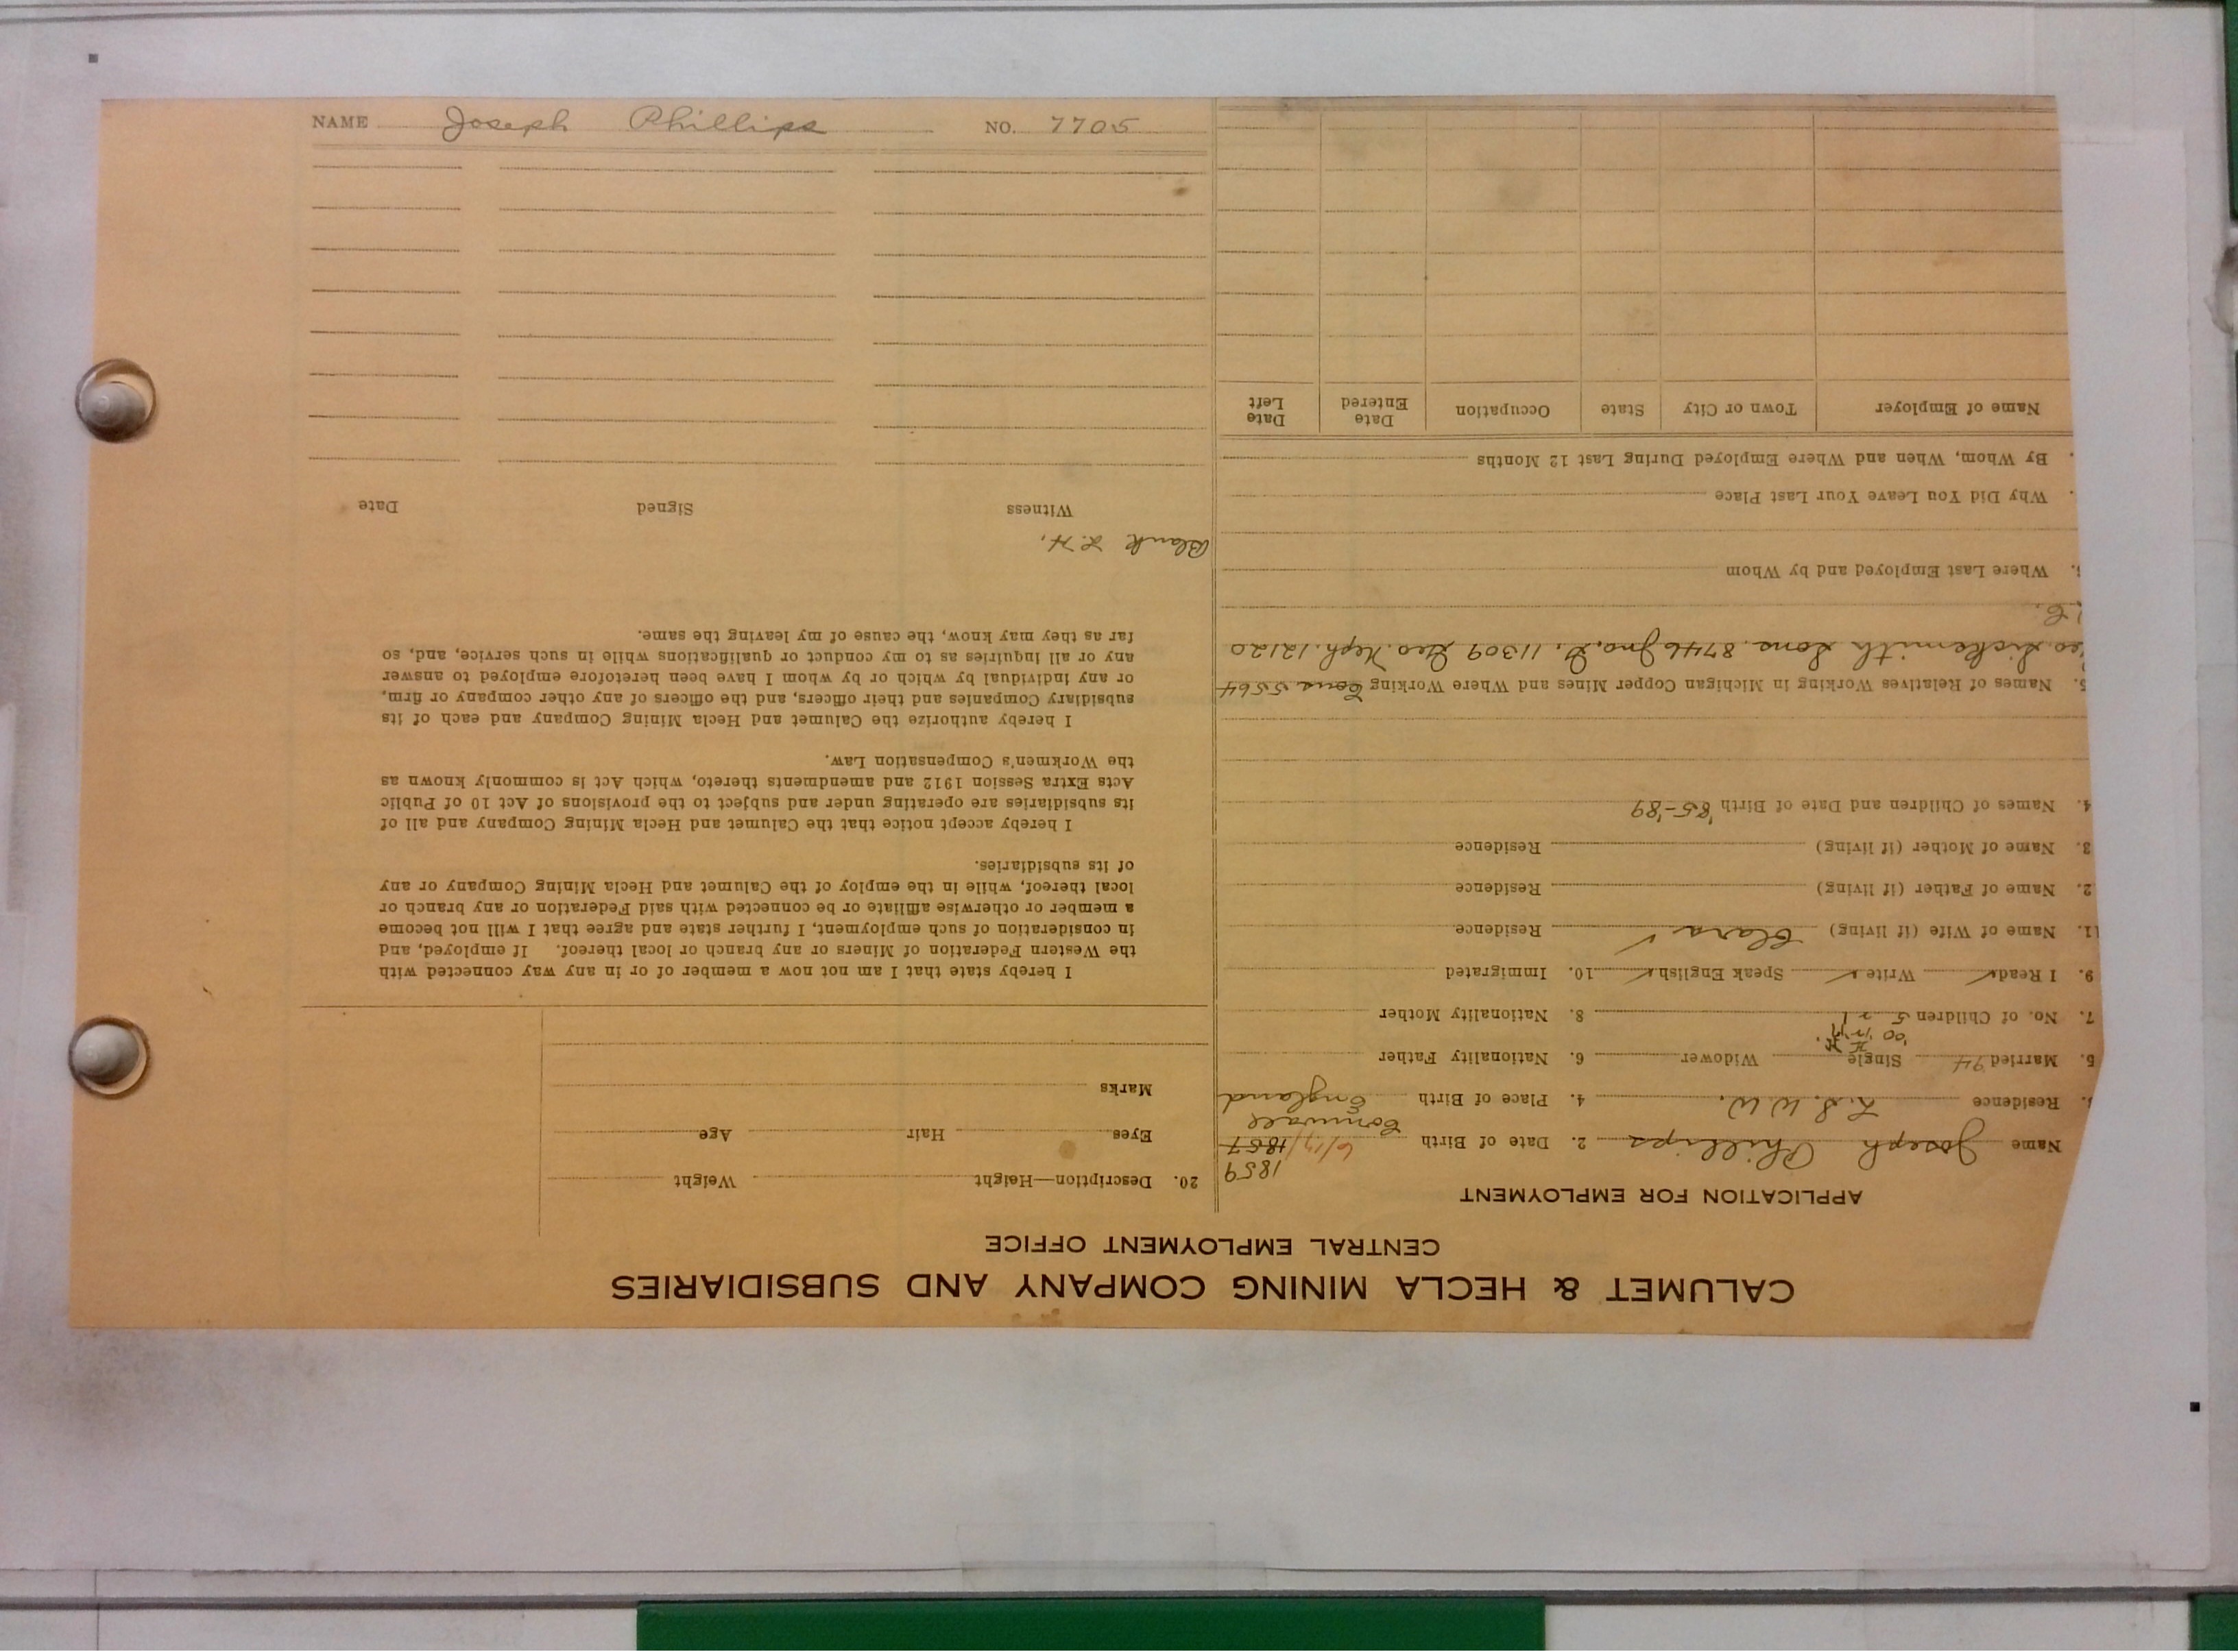 NAME Joseph Phillips NO. 7705
CALUMET & HECLA MINING COMPANY AND SUBSIDIARIES
CENTRAL EMPLOYMENT OFFICE
APPLICATION FOR EMPLOYMENT
1859
Name Joseph Phillips 2. Date of Birth 6/17/1857
Cornwall
Residence L. S. W. W. 4. Place of Birth England
5. Married 94 Single Widower 6. Nationality Father
7. No. of Children 5 8. Nationality Mother
9. I Read ✓ Write ✓ Speak English ✓ 10. Immigrated
11. Name of Wife (if living) Clara ✓ Residence
2. Name of Father (if living) Residence
3. Name of Mother (if living) Residence
4. Names of Children and Date of Birth '85-'89
5. Names of Relatives Working in Michigan Copper Mines and Where Working 5564
Sons. 8746 Jno. D. 11309 Geo. Neph. 12120
Where Last Employed and by Whom
Why Did You Leave Your Last Place
By Whom, When and Where Employed During Last 12 Months
Name of Employer Town or City State Occupation Date Entered Date Left
20. Description—Height Weight
Eyes Hair Age
Marks
I hereby state that I am not now a member of or in any way connected with
the Western Federation of Miners or any branch or local thereof. If employed, and
in consideration of such employment, I further state and agree that I will not become
a member or otherwise affiliate or be connected with said Federation or any branch or
local thereof, while in the employ of the Calumet and Hecla Mining Company or any
of its subsidiaries.
I hereby accept notice that the Calumet and Hecla Mining Company and all of
its subsidiaries are operating under and subject to the provisions of Act 10 of Public
Acts Extra Session 1912 and amendments thereto, which Act is commonly known as
the Workmen's Compensation Law.
I hereby authorize the Calumet and Hecla Mining Company and each of its
subsidiary Companies and their officers, and the officers of any other company or firm,
or any individual by which or by whom I have been heretofore employed to answer
any or all inquiries as to my conduct or qualifications while in such service, and, so
far as they may know, the cause of my leaving the same.
Blank L. H.
Witness Signed Date